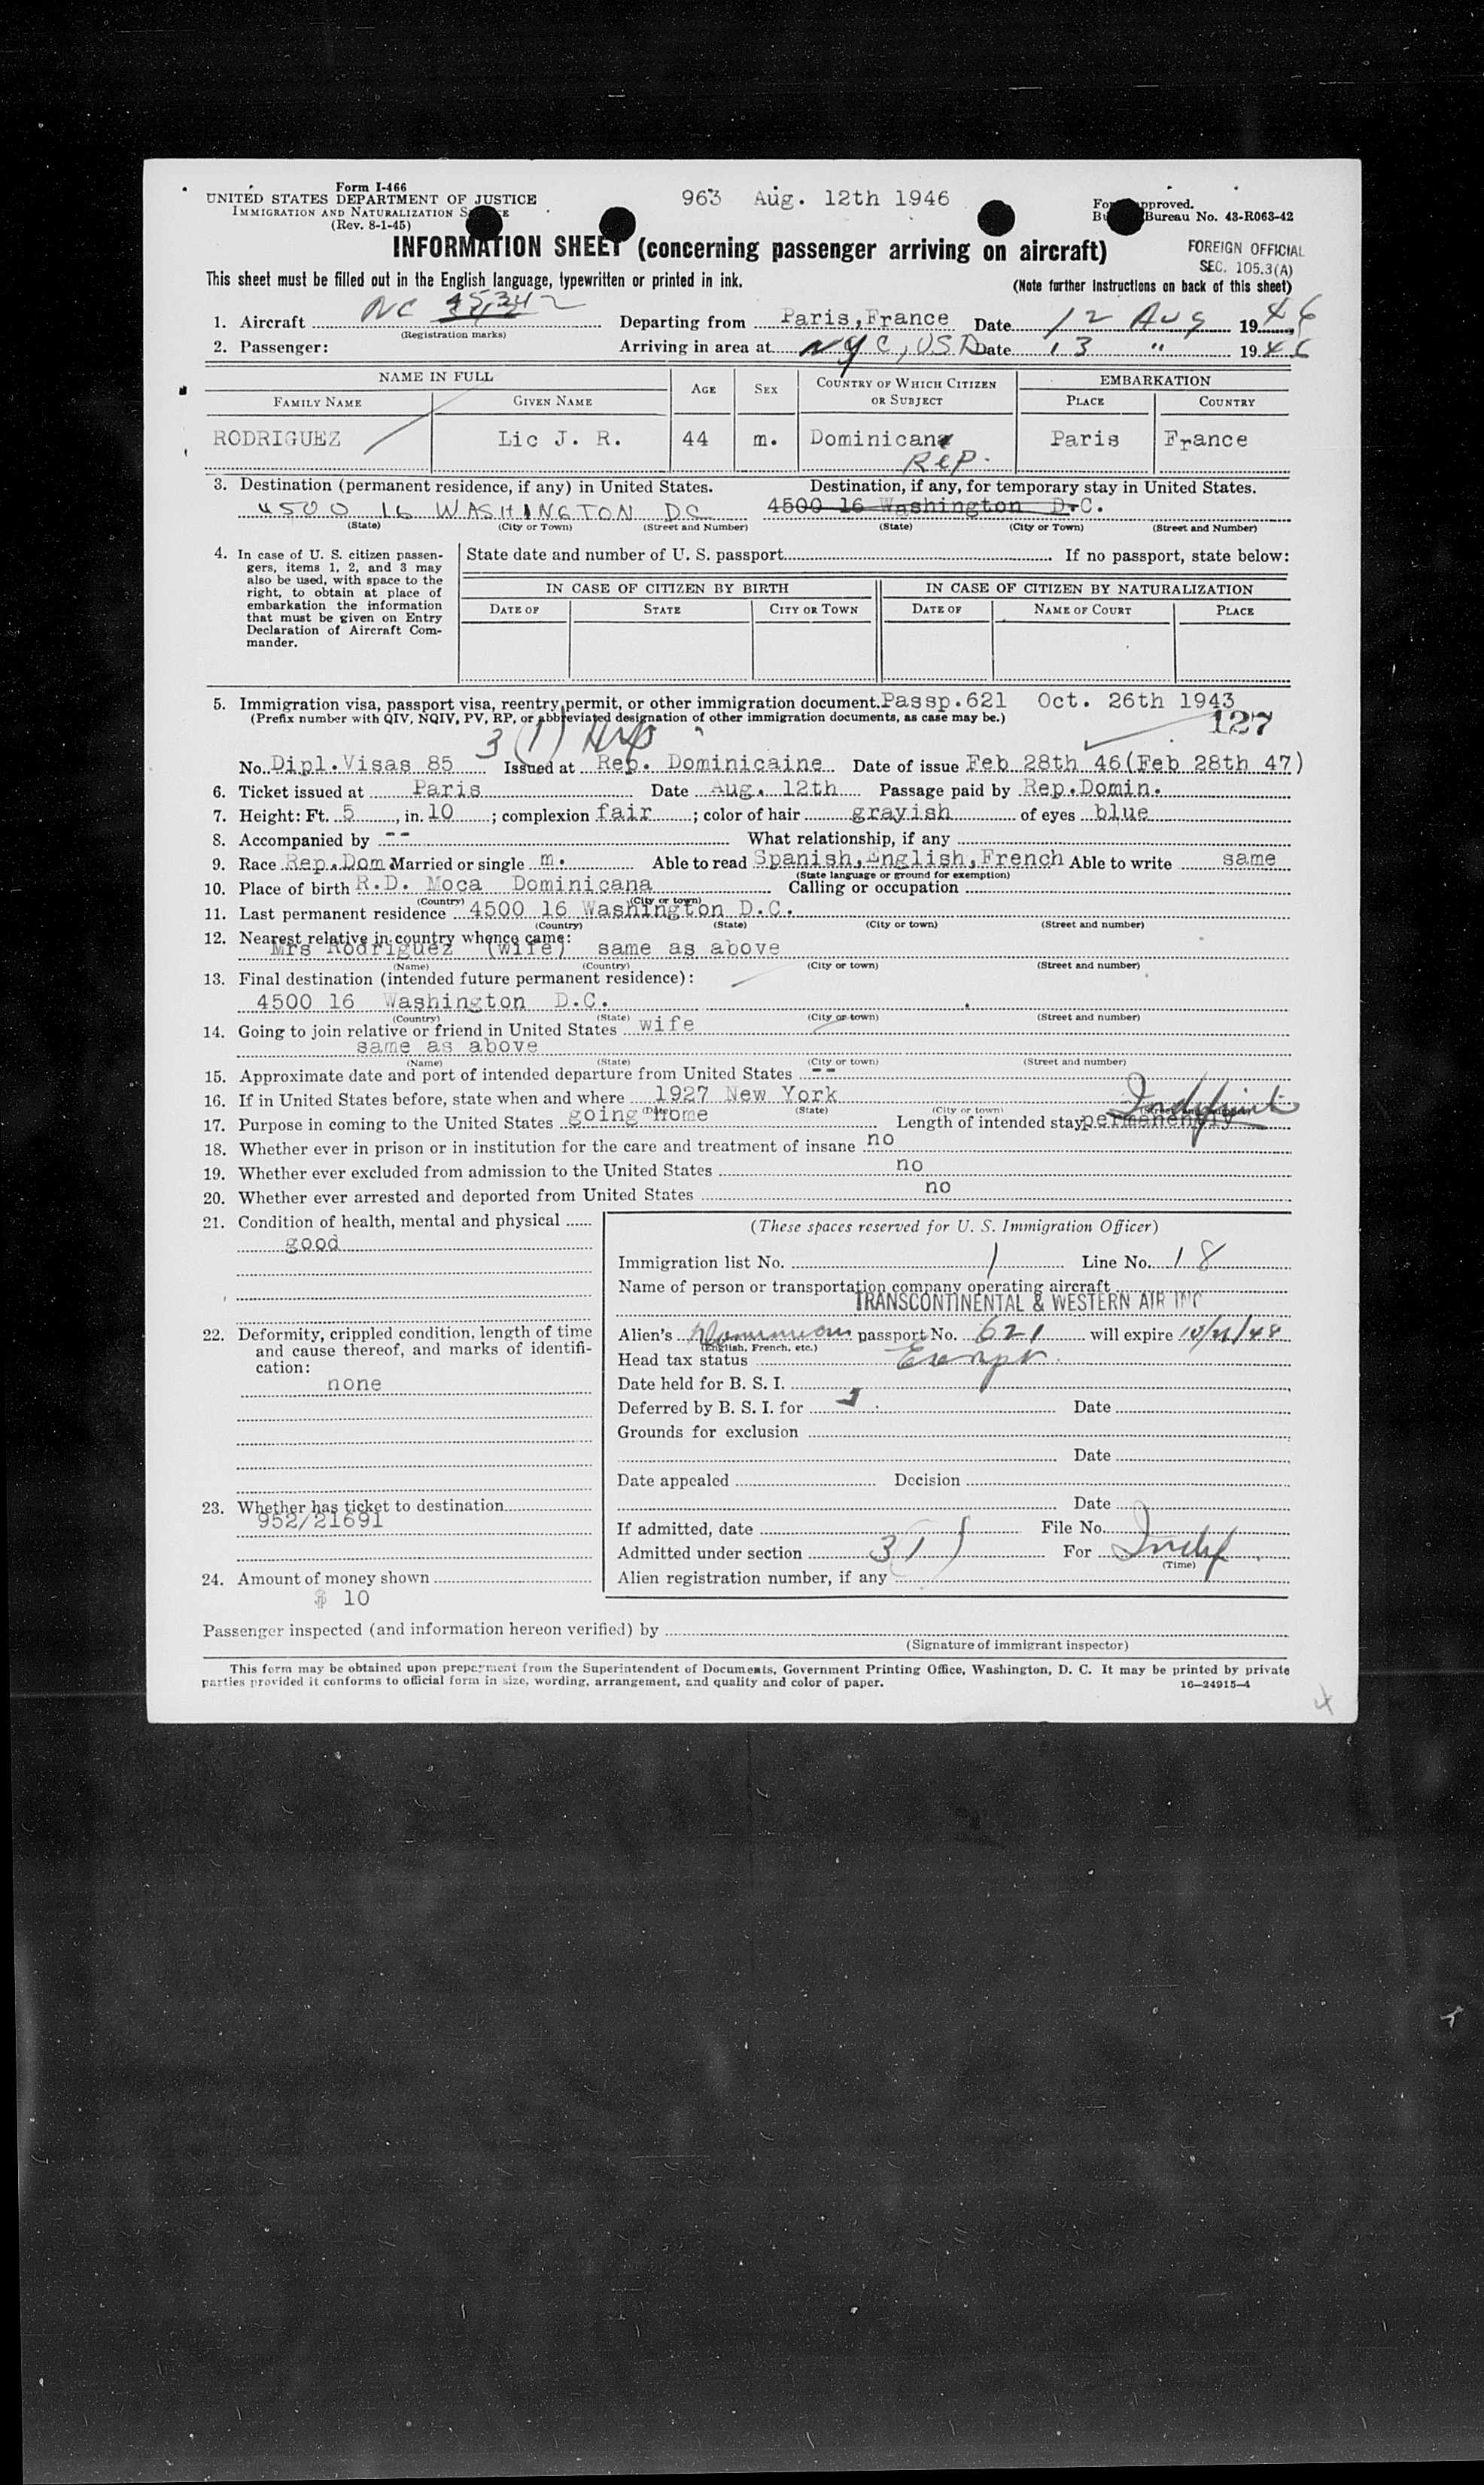 Form I-466
UNITED STATES DEPARTMENT OF JUSTICE
IMMIGRATION AND NATURALIZATION
(Rev. 8-1-45)
963 Aug. 12th 1946
approved.
Bureau No. 43-R063-42
INFORMATION SHEET (concerning passenger arriving on aircraft)
FOREIGN OFFICIAL
SEC. 105.3(A)
This sheet must be filled out in the English language, typewritten or printed in ink.
(Note further instructions on back of this sheet)
1. Aircraft NC 45342 Departing from Paris, France Date 12 Aug 1946
(Registration marks)
2. Passenger: Arriving in area at NYC, USA Date 13 " 1946
NAME IN FULL AGE SEX COUNTRY OF WHICH CITIZEN OR SUBJECT EMBARKATION
FAMILY NAME GIVEN NAME PLACE COUNTRY
RODRIGUEZ Lic J. R. 44 m. Dominican Paris France
REP.
3. Destination (permanent residence, if any) in United States. Destination, if any, for temporary stay in United States.
4500 16 WASHINGTON DC 4500 16 Washington D.C.
(State) (City or Town) (Street and Number) (State) (City or Town) (Street and Number)
4. In case of U. S. citizen passen-
gers, items 1, 2, and 3 may
also be used, with space to the
right, to obtain at place of
embarkation the information
that must be given on Entry
Declaration of Aircraft Com-
mander.
State date and number of U. S. passport If no passport, state below:
IN CASE OF CITIZEN BY BIRTH IN CASE OF CITIZEN BY NATURALIZATION
DATE OF STATE CITY OR TOWN DATE OF NAME OF COURT PLACE
5. Immigration visa, passport visa, reentry permit, or other immigration document. Passp.621 Oct. 26th 1943
(Prefix number with QIV, NQIV, PV, RP, or abbreviated designation of other immigration documents, as case may be.) 127
3 (1)
No. Dipl.Visas 85 Issued at Rep. Dominicaine Date of issue Feb 28th 46(Feb 28th 47)
6. Ticket issued at Paris Date Aug. 12th Passage paid by Rep.Domin.
7. Height: Ft. 5, in. 10; complexion fair; color of hair grayish of eyes blue
8. Accompanied by -- What relationship, if any
9. Race Rep.Dom Married or single m. Able to read Spanish,English,French Able to write same
(State language or ground for exemption)
10. Place of birth R.D. Moca Dominicana Calling or occupation
(Country) (City or town)
11. Last permanent residence 4500 16 Washington D.C.
(Country) (State) (City or town) (Street and number)
12. Nearest relative in country whence came:
Mrs Rodriguez (wife) same as above
(Name) (Country) (City or town) (Street and number)
13. Final destination (intended future permanent residence):
4500 16 Washington D.C.
(Country) (State) (City or town) (Street and number)
14. Going to join relative or friend in United States wife
same as above
(Name) (State) (City or town) (Street and number)
15. Approximate date and port of intended departure from United States --
16. If in United States before, state when and where 1927 New York
(Date) (State) (City or town) (Street and number)
17. Purpose in coming to the United States going home Length of intended stay permanently Indefinite
18. Whether ever in prison or in institution for the care and treatment of insane no
19. Whether ever excluded from admission to the United States no
20. Whether ever arrested and deported from United States no
21. Condition of health, mental and physical
good
22. Deformity, crippled condition, length of time
and cause thereof, and marks of identifi-
cation:
none
23. Whether has ticket to destination
952/21691
24. Amount of money shown
$ 10
(These spaces reserved for U. S. Immigration Officer)
Immigration list No. 1 Line No. 18
Name of person or transportation company operating aircraft
TRANSCONTINENTAL & WESTERN AIR INC
Alien's Dominican passport No. 621 will expire
(English, French, etc.)
Head tax status Exempt
Date held for B. S. I.
Deferred by B. S. I. for Date
Grounds for exclusion
Date
Date appealed Decision
Date
If admitted, date File No.
Admitted under section 3(1) For Indef
(Time)
Alien registration number, if any
Passenger inspected (and information hereon verified) by
(Signature of immigrant inspector)
This form may be obtained upon prepayment from the Superintendent of Documents, Government Printing Office, Washington, D. C. It may be printed by private
parties provided it conforms to official form in size, wording, arrangement, and quality and color of paper.
16—24915-4